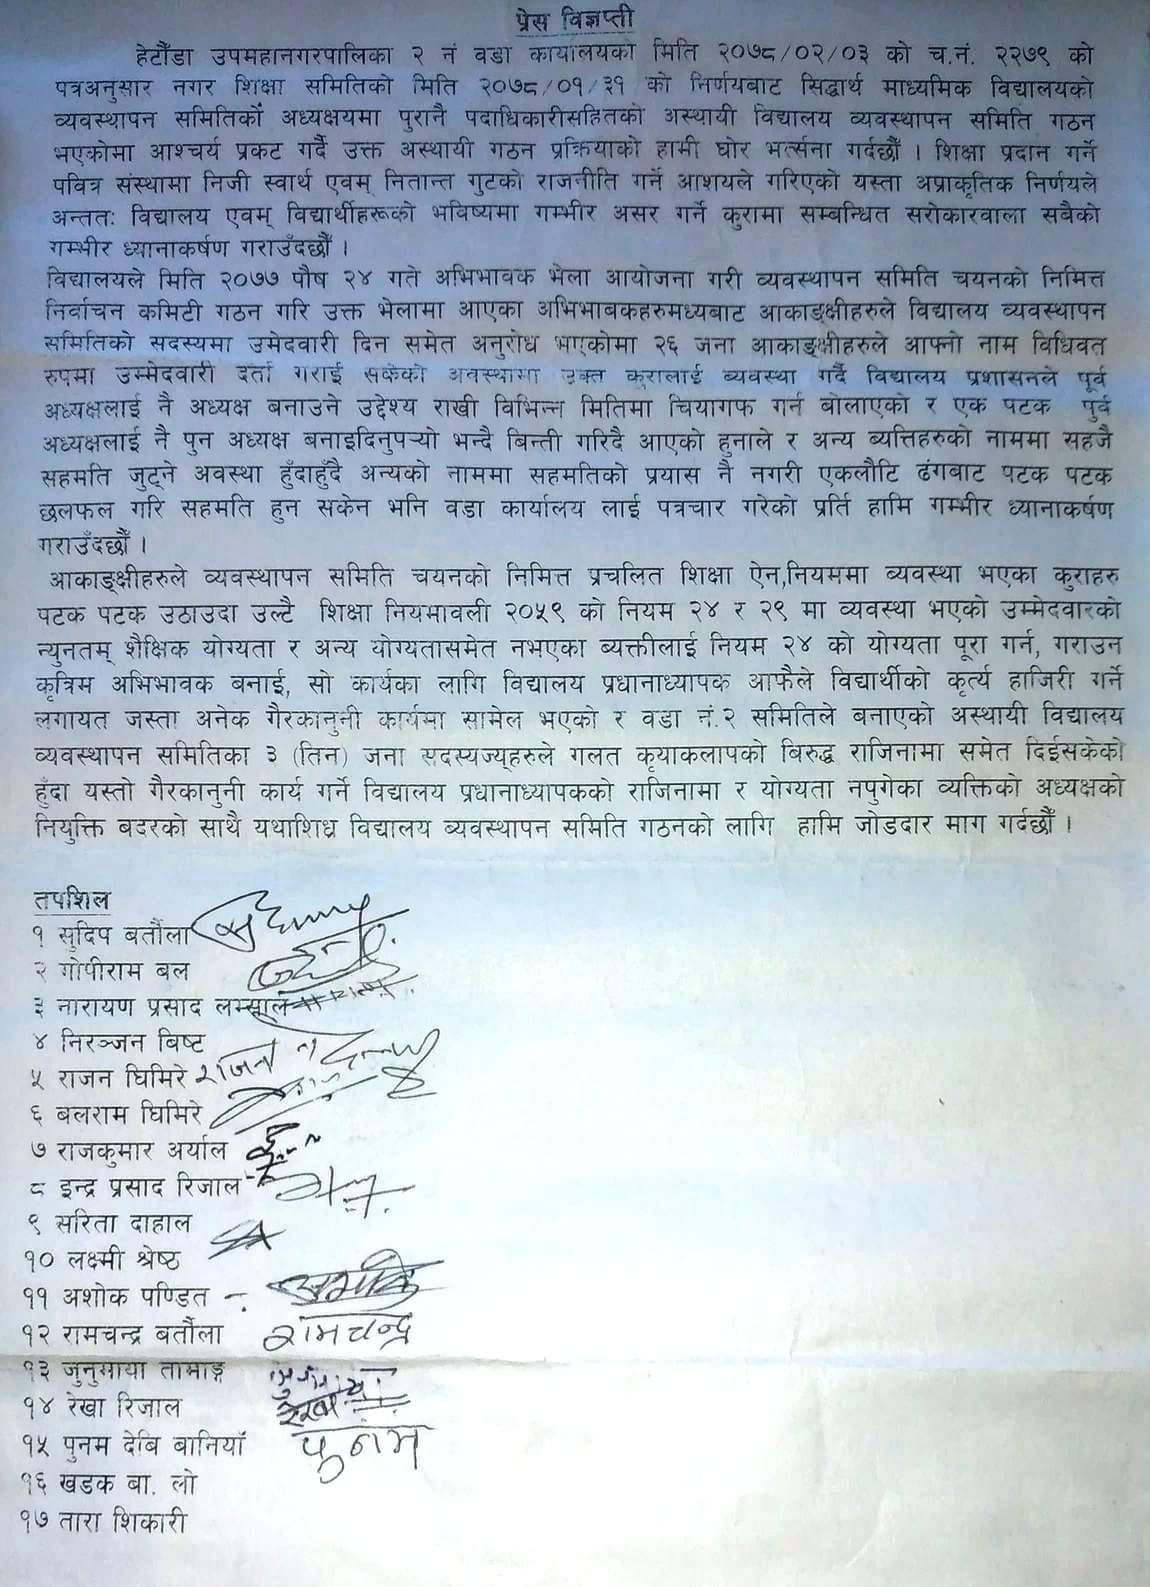 प्रेस विज्ञप्ती
हेटौंडा उपमहानगरपालिका २ नं वडा कायालयको मिति २०७८/०२/०३ को च.नं. २२७९ को
पत्रअनुसार नगर शिक्षा समितिको मिति २०७८/०१/३१ को निर्णयबाट सिद्धार्थ माध्यमिक विद्यालयको
व्यवस्थापन समितिकोे अध्यक्षयमा पुरानै पदाधिकारीसहितको अस्थायी विद्यालय व्यवस्थापन समिति गठन
भएकोमा आश्चर्य प्रकट गर्दै उक्त अस्थायी गठन प्रक्रियाको हामी घोर भर्त्सना गर्दछौं । शिक्षा प्रदान गर्ने
पवित्र संस्थामा निजी स्वार्थ एवम् नितान्त गुटको राजनीति गर्ने आशयले गरिएको यस्ता अप्राकृतिक निर्णयले
अन्ततः विद्यालय एवम् विद्यार्थीहरूको भविष्यमा गम्भीर असर गर्ने कुरामा सम्बन्धित सरोकारवाला सबैको
गम्भीर ध्यानाकर्षण गराउँदछौं ।
विद्यालयले मिति २०७७ पौष २४ गते अभिभावक भेला आयोजना गरी व्यवस्थापन समिति चयनको निमित्त
निर्वाचन कमिटी गठन गरि उक्त भेलामा आएका अभिभाबकहरुमध्यबाट आकाङ्क्षीहरुले विद्यालय व्यवस्थापन
समितिको सदस्यमा उमेदवारी दिन समेत अनुरोध भएकोमा २६ जना आकाङ्क्षीहरुले आफ्नो नाम विधिवत
रुपमा उम्मेदवारी दर्ता गराई सकेको अवस्थामा उक्त कुरालाई ब्यवस्था गर्दै विद्यालय प्रशासनले पूर्व
अध्यक्षलाई नै अध्यक्ष बनाउने उद्देश्य राखी विभिन्न मितिमा चियागफ गर्न बोलाएको र एक पटक पुर्व
अध्यक्षलाई नै पुन अध्यक्ष बनाइदिनुपऱ्यो भन्दै बिन्ती गरिदै आएको हुनाले र अन्य ब्यत्तिहरुको नाममा सहजै
सहमति जुट्ने अवस्था हुँदाहुँदै अन्यको नाममा सहमतिको प्रयास नै नगरी एकलौटि ढंगबाट पटक पटक
छलफल गरि सहमति हुन सकेन भनि वडा कार्यालय लाई पत्रचार गरेको प्रर्ति हामि गम्भीर ध्यानाकर्षण
गराउँदछौं ।
आकाङ्क्षीहरुले व्यवस्थापन समिति चयनको निमित्त प्रचलित शिक्षा ऐन,नियममा ब्यवस्था भएका कुराहरु
पटक पटक उठाउदा उल्टै शिक्षा नियमावली २०५९ को नियम २४ र २९ मा व्यवस्था भएको उम्मेदवारको
न्युनतम् शैक्षिक योग्यता र अन्य योग्यतासमेत नभएका ब्यक्तीलाई नियम २४ को योग्यता पूरा गर्न, गराउन
कृत्रिम अभिभावक बनाई, सो कार्यका लागि विद्यालय प्रधानाध्यापक आफैले विद्यार्थीको कृर्त्य हाजिरी गर्ने
लगायत जस्ता अनेक गैरकानुनी कार्यमा सामेल भएको र वडा नं.२ समितिले बनाएको अस्थायी विद्यालय
व्यवस्थापन समितिका ३ (तिन) जना सदस्यज्यूहरुले गलत कृयाकलापको बिरुद्ध राजिनामा समेत दिईसकेको
हुँदा यस्तो गैरकानुनी कार्य गर्ने विद्यालय प्रधानाध्यापकको राजिनामा र योग्यता नपुगेका व्यक्तिको अध्यक्षको
नियुक्ति बदरको साथै यथाशिध्र विद्यालय ब्यवस्थापन समिति गठनको लागि हामि जोडदार माग गर्दछौं ।
तपशिल
१ सुदिप बर्तौला
२ गोपीराम बल
३ नारायण प्रसाद लम्साल
४ निरञ्जन बिष्ट
५ राजन घिमिरे राजन
६ बलराम घिमिरे
७ राजकुमार अर्याल
८ इन्द्र प्रसाद रिजाल
९ सरिता दाहाल
१० लक्ष्मी श्रेष्ठ
११ अशोक पण्डित
१२ रामचन्द्र बर्तौला रामचन्द्र
१३ जुनुमाया तामाङ्ग
१४ रेखा रिजाल रेखा
१५ पुनम देबि बानियाँ पुनम
१६ खडक बा. लो
१७ तारा शिकारी